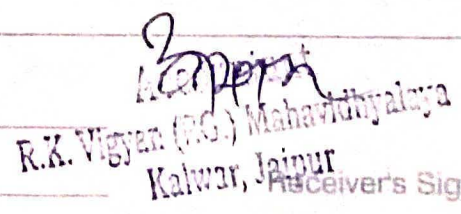 R.K. Vigyan (P.G.) Mahavidhyalaya
Kalwar, Jaipur
Receiver's Sig